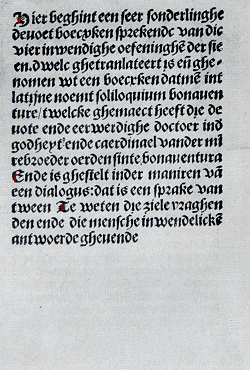 Hier beghint een seer sonderlinghe
deuoet boecxken sprekende van diē
vier inwendighe oefeninghē der sie
en.dwelc ghetranslateert is eñ ghe-
nomen wt een boecxken datmē int
latijne noemt soliloquium bonauen
ture/twelcke ghemaect heeft die de
uote ende eerwerdighe doctoer ind
godheyt/ende caerdinael vander mī
rebroeder oerden sinte bonauentura
Ende is ghestelt inder maniren vā
een dialogus:dat is een sprake van
tween Te weten die ziele vraghen
den ende die mensche inwendelickē
antwoerde gheuende